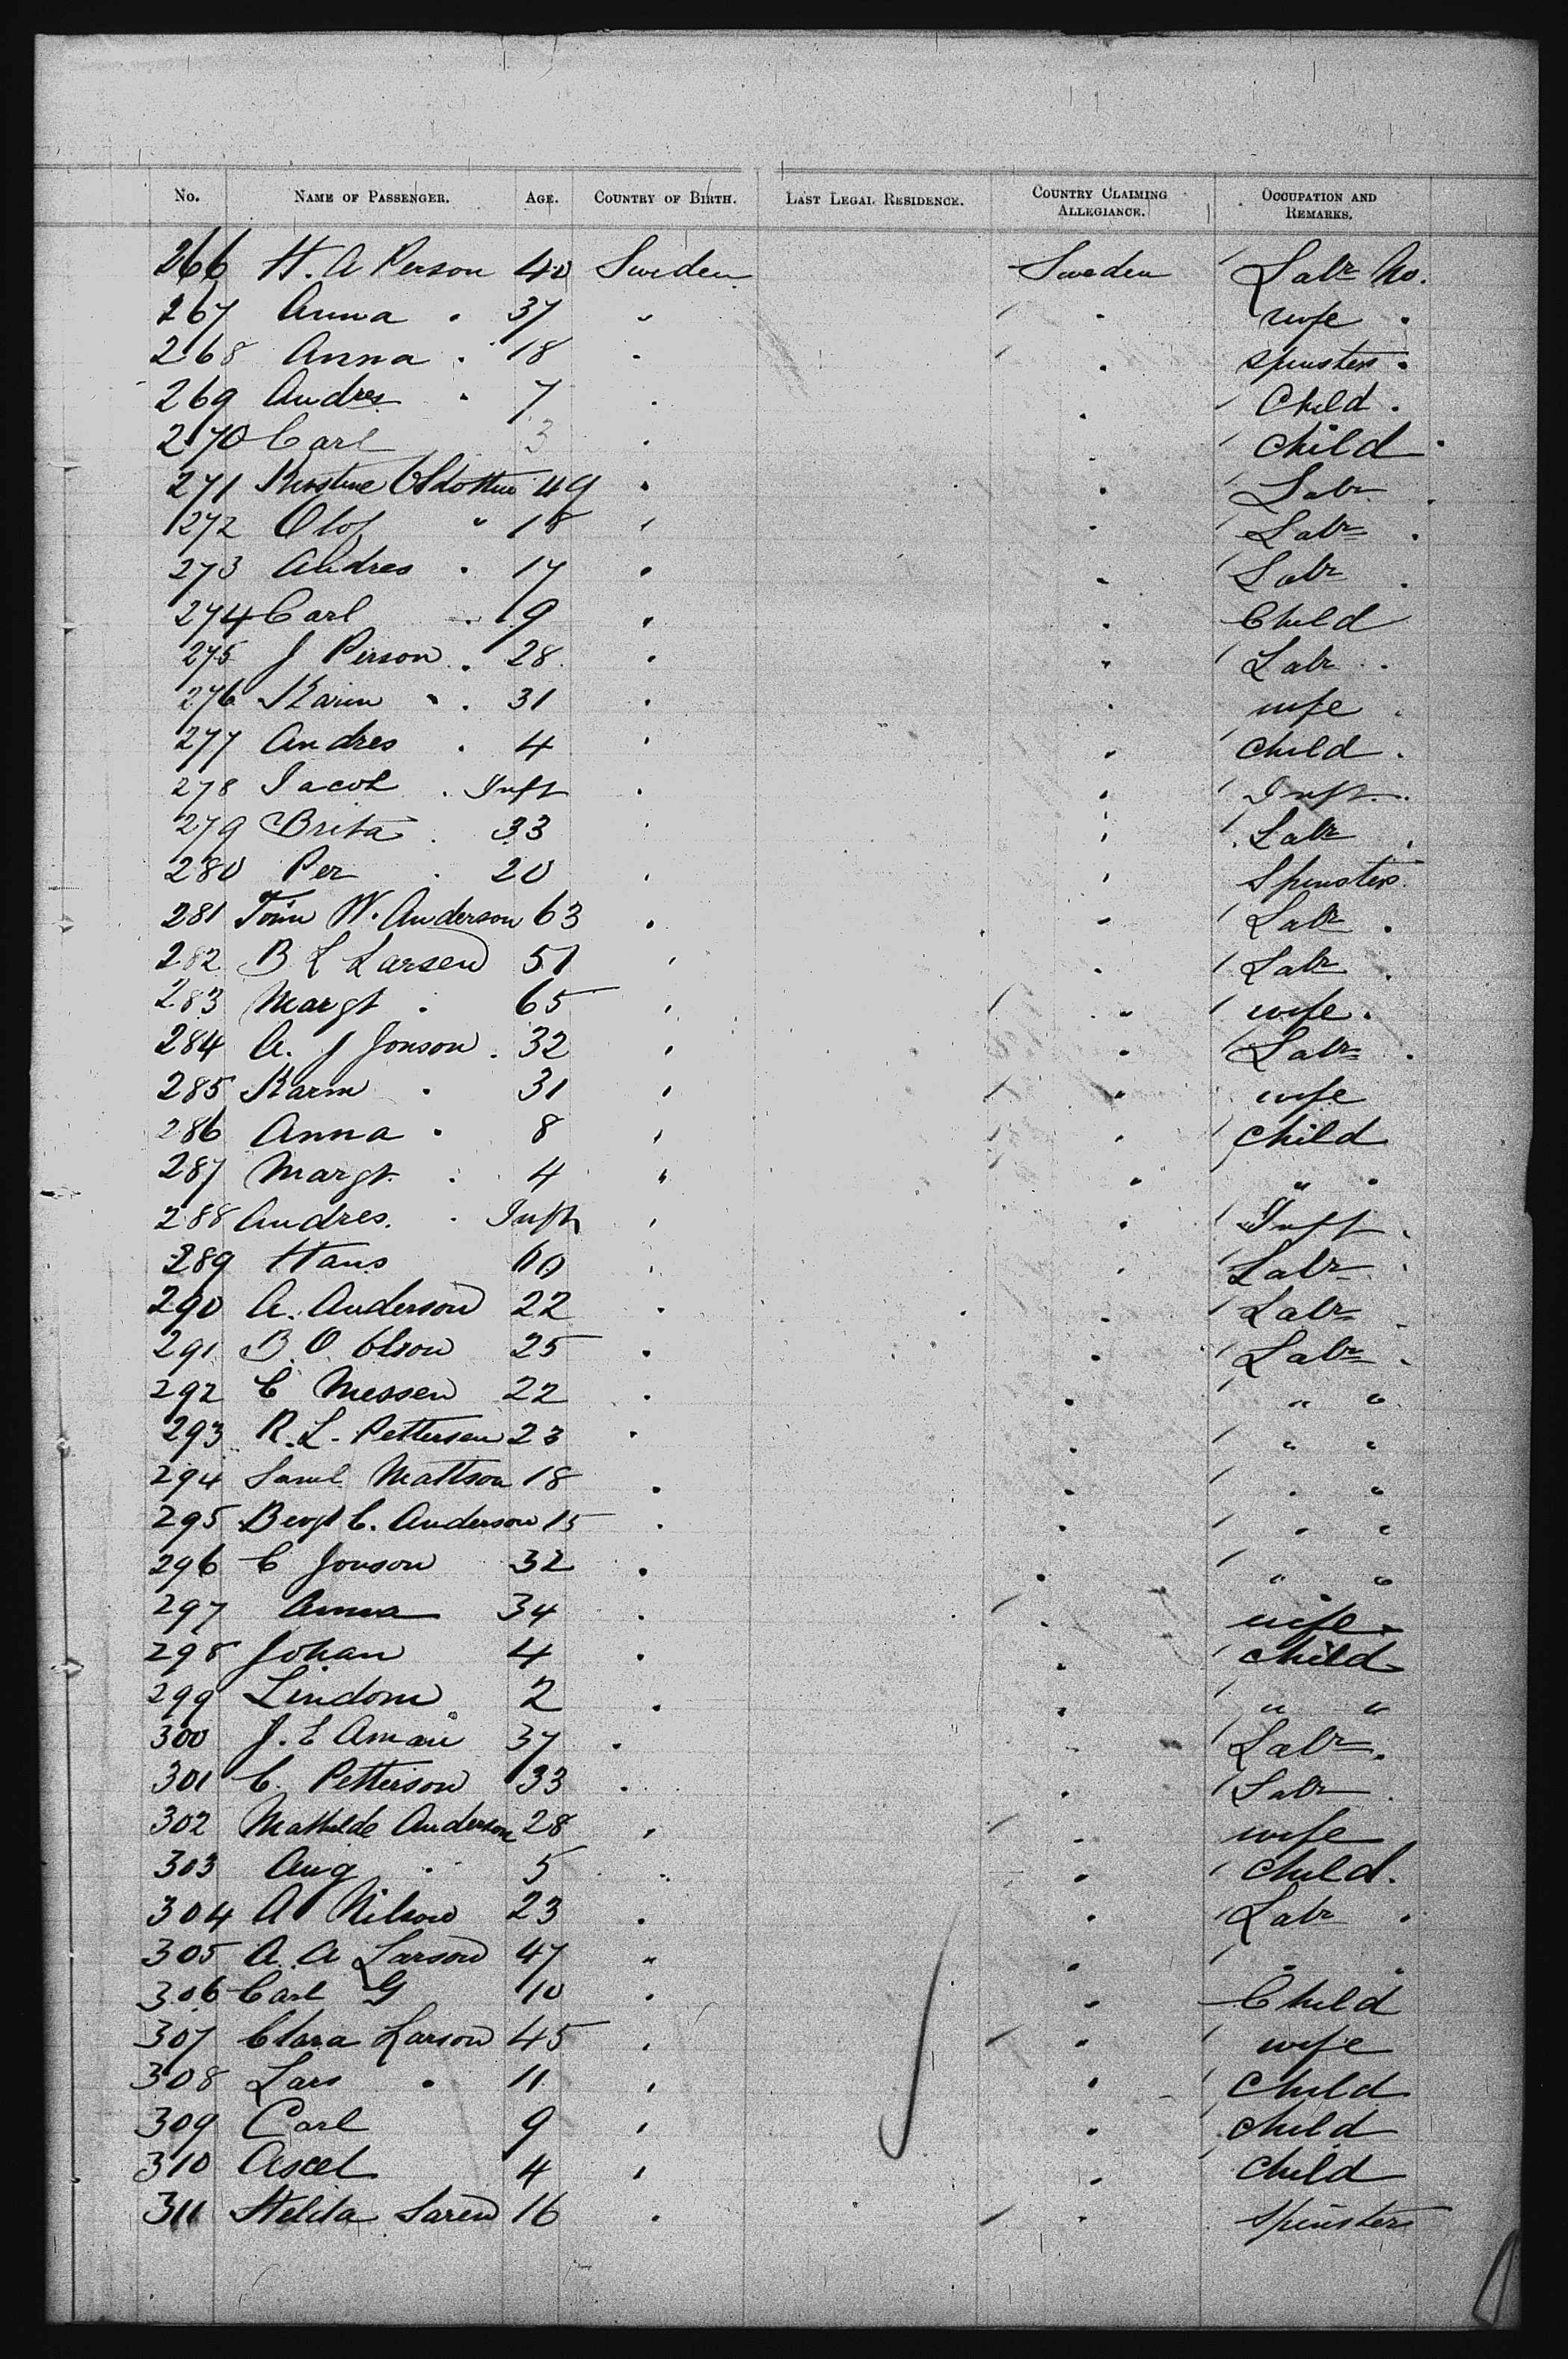 No. NAME OF PASSENGER. AGE. COUNTRY OF BIRTH. LAST LEGAL RESIDENCE. COUNTRY CLAIMING ALLEGIANCE. OCCUPATION AND REMARKS.
266 H. A Person 40 Sweden Sweden Labr No.
267 Anna " 37 " " wife "
268 Anna " 18 " " Spinster "
269 Andres " 7 " " Child "
270 Carl 3 " " child "
271 49 " " Labr "
272 Olof " 18 " " Labr "
273 Andres " 17 " " Labr "
274 Carl " 9 " " Child
275 J Person " 28 " " Labr "
276 Karin " 31 " " wife "
277 Andres " 4 " " child "
278 Jacob " Inft " " Inft "
279 Brita " 33 " " Labr "
280 Per " 20 " " Spinster
281 W. Anderson 63 " " Labr "
282 B L Larsen 51 " " Labr "
283 Margt " 65 " " wife "
284 A. J Jonson " 32 " " Labr "
285 Karin " 31 " " wife
286 Anna " 8 " " child
287 Margt " 4 " " " "
288 Andres " Inft " " Inft "
289 Hans " " Labr "
290 A. Anderson 22 " " Labr "
291 B. O Olson 25 " " Labr "
292 C Nessen 22 " " " "
293 R. L. Pettersen 23 " " " "
294 Saml Mattson 18 " " " "
295 Bengt C. Anderson 15 " " " "
296 C Jonson 32 " " " "
297 Anna 34 " " wife "
298 Johan 4 " " child
299 Lindom 2 " " " "
300 J. E Aman 37 " " Labr "
301 C. Petterson 33 " " Labr "
302 Mathilde Anderson 28 " " wife "
303 Aug " 5 " " child "
304 A Nilson 23 " " Labr "
305 A. A Larson 47 " " " "
306 Carl G 10 " " Child
307 Clara Larson 45 " " wife
308 Lars " 11 " " child
309 Carl 9 " " child
310 Axel 4 " " child
311 16 " " Spinster